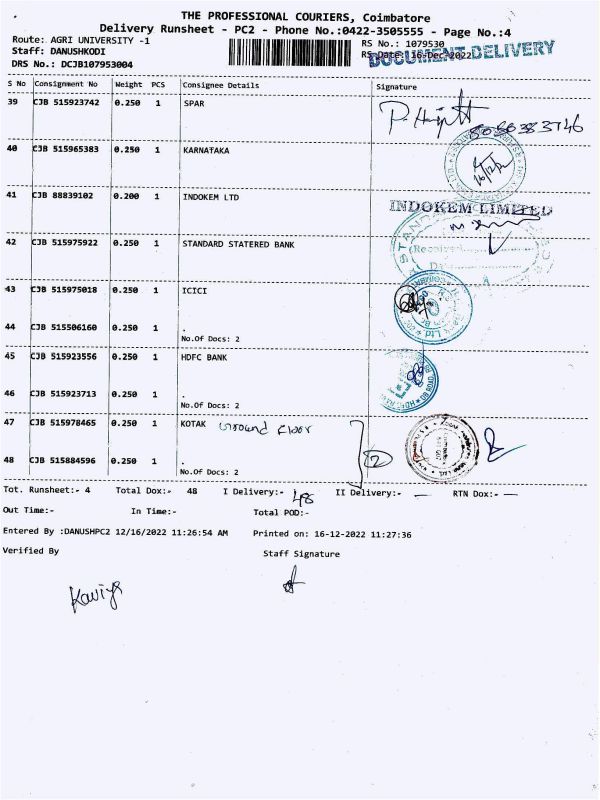 THE PROFESSIONAL COURIERS, Coimbatore
Delivery Runsheet - PC2 - Phone No.:0422-3505555 - Page No.:4
Route: AGRI UNIVERSITY -1
RS No.: 1079530
Staff: DANUSHKODI
RS Date: 16-Dec-2022
DOCUMENT DELIVERY
DRS No.: DCJB107953004
S No Consignment No Weight PCS Consignee Details Signature
39 CJB 515923742 0.250 1 SPAR
8050383746
40 CJB 515965383 0.250 1 KARNATAKA
41 CJB 88839102 0.200 1 INDOKEM LTD
INDOKEM LIMITED
42 CJB 515975922 0.250 1 STANDARD STATERED BANK
Received
43 CJB 515975018 0.250 1 ICICI
44 CJB 515506160 0.250 1 .
No.Of Docs: 2
45 CJB 515923556 0.250 1 HDFC BANK
46 CJB 515923713 0.250 1 .
No.Of Docs: 2
47 CJB 515978465 0.250 1 KOTAK Ground Floor
2
48 CJB 515884596 0.250 1 .
No.Of Docs: 2
Tot. Runsheet:- 4 Total Dox:- 48 I Delivery:- 48 II Delivery:- — RTN Dox:- —
Out Time:- In Time:- Total POD:-
Entered By :DANUSHPC2 12/16/2022 11:26:54 AM Printed on: 16-12-2022 11:27:36
Verified By Staff Signature
Kaviya